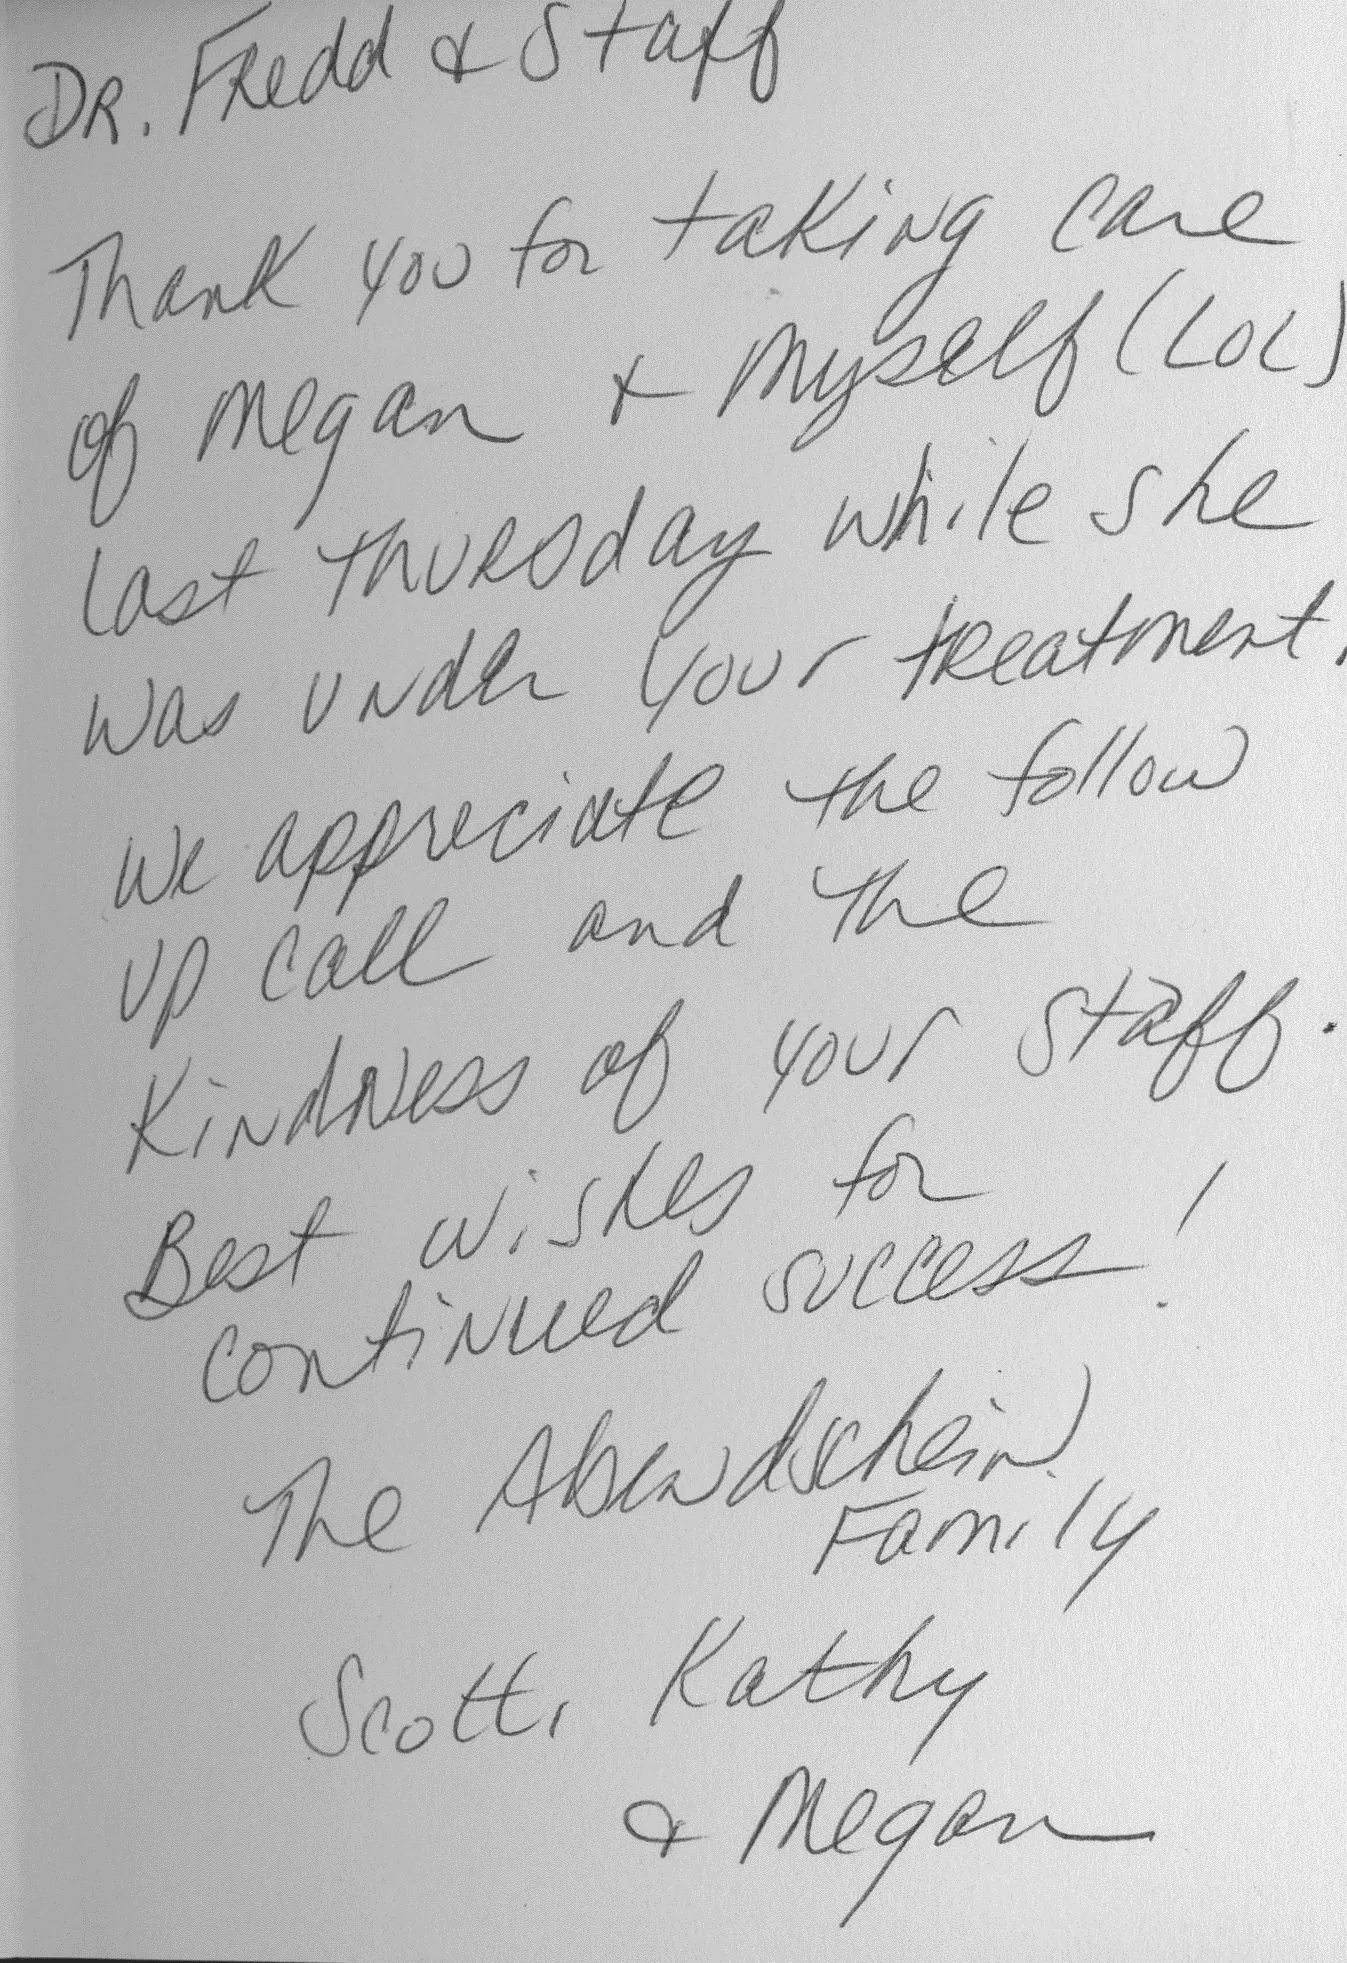 Dr. Fredd & Staff
Thank you for taking care
of Megan & Myself (LOL)
last Thursday while she
was under your treatment.
We appreciate the follow
up call and the
Kindness of your staff.
Best wishes for
continued success!
The Abendschein
Family
Scott, Kathy
& Megan